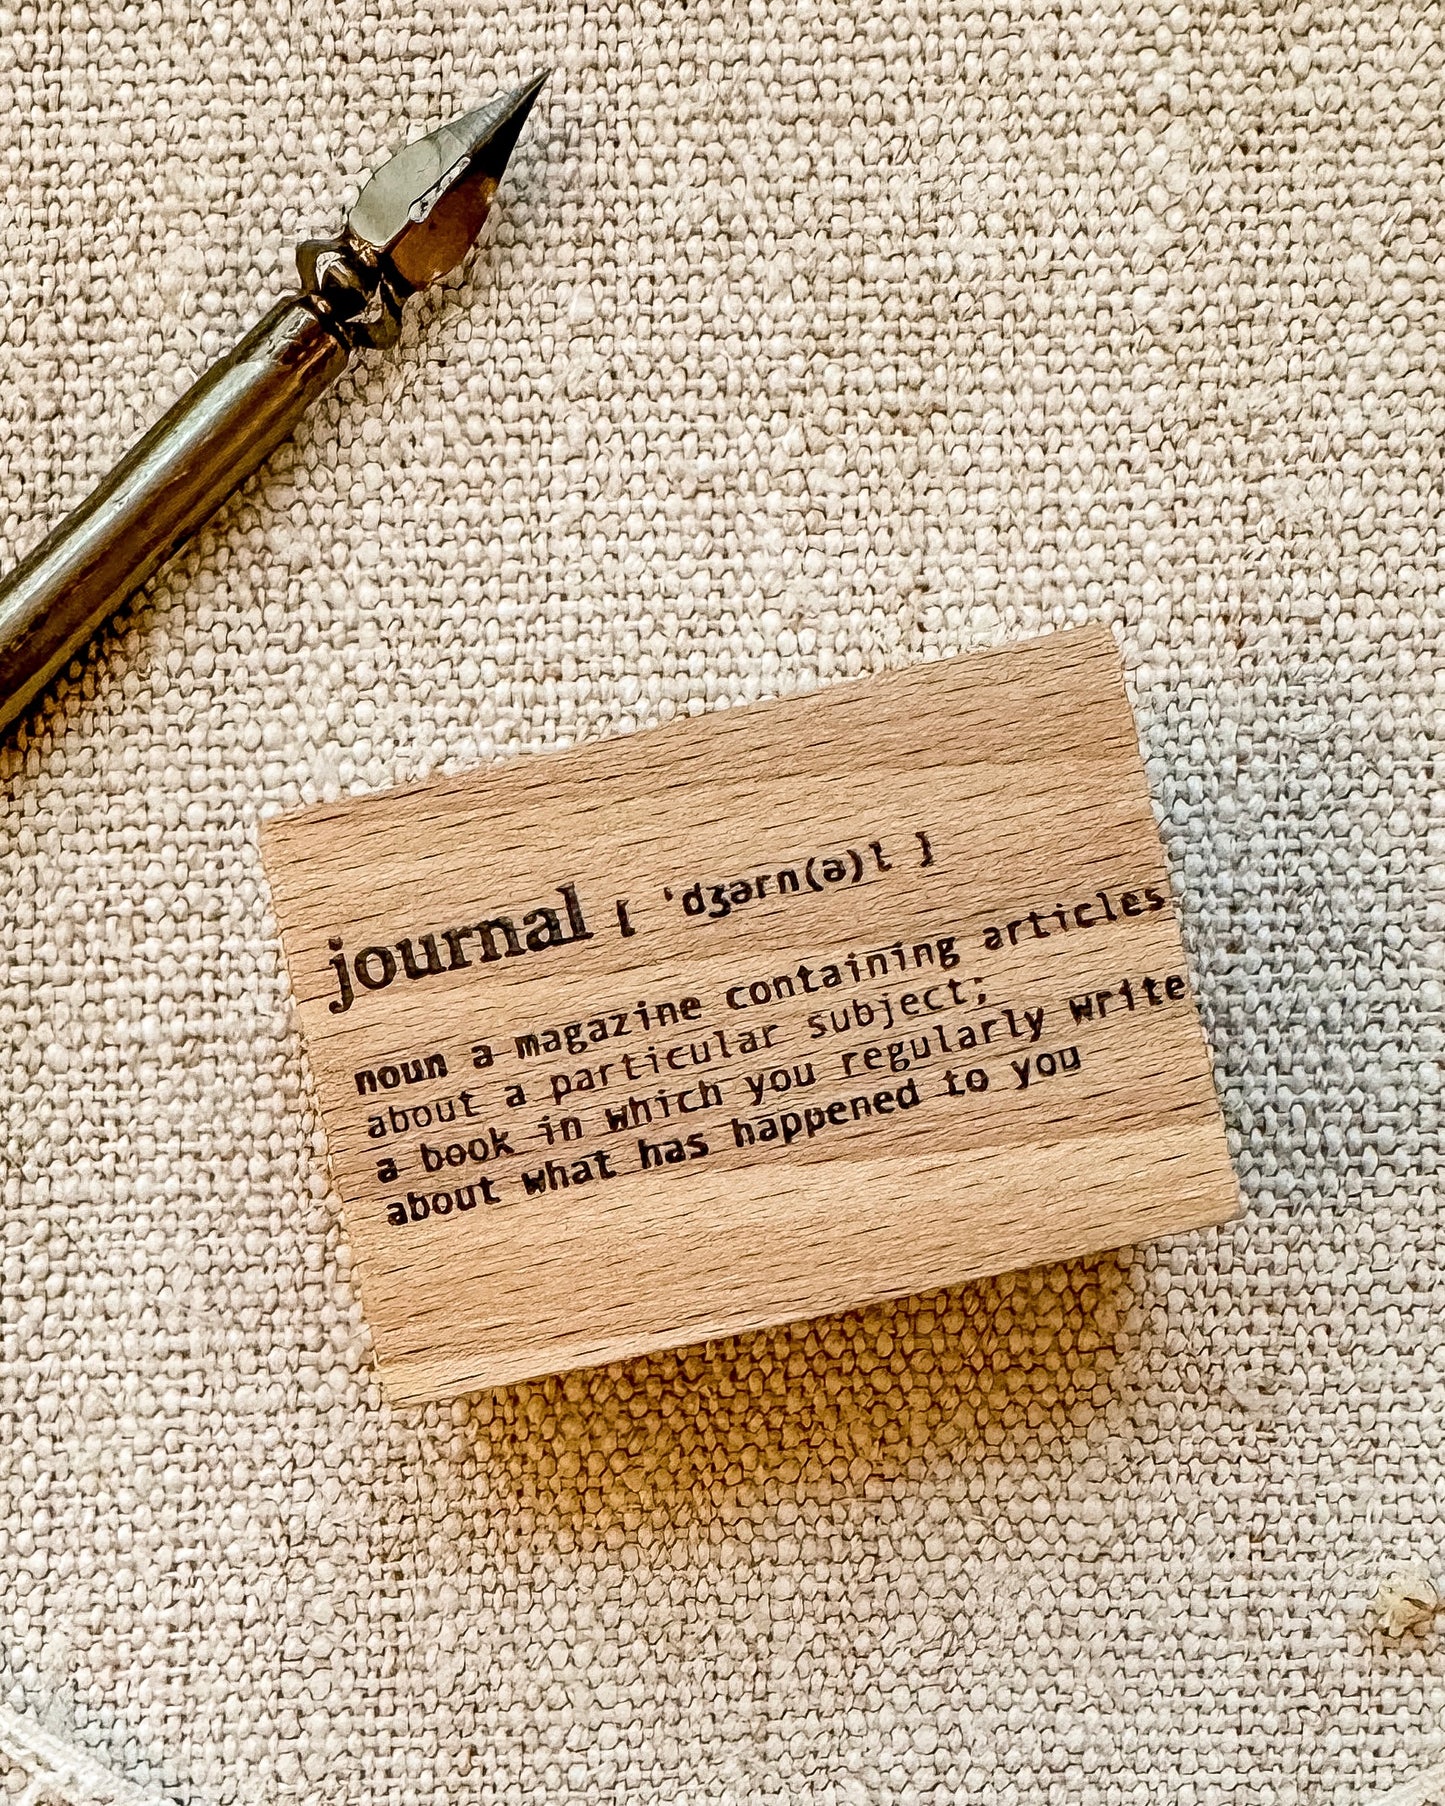 journal [ 'dʒərn(ə)l ]
noun a magazine containing articles
about a particular subject;
a book in which you regularly write
about what has happened to you